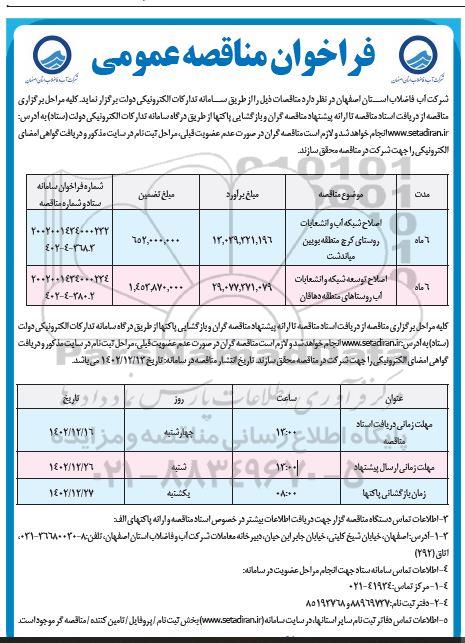 فراخوان مناقصه عمومی
شرکت آب و فاضلاب استان اصفهان
شرکت آب و فاضلاب استان اصفهان
شرکت آب فاضلاب استان اصفهان در نظر دارد مناقصات ذیل را از طریق سامانه تدارکات الکترونیکی دولت برگزار نماید. کلیه مراحل برگزاری
مناقصه از دریافت اسناد مناقصه تا ارائه پیشنهاد مناقصه گران و بازگشایی پاکتها از طریق درگاه سامانه تدارکات الکترونیکی دولت (ستاد) به آدرس:
www.setadiran.ir انجام خواهد شد و لازم است مناقصه گران در صورت عدم عضویت قبلی، مراحل ثبت نام در سایت مذکور و دریافت گواهی امضای
الکترونیکی را جهت شرکت در مناقصه محقق سازند.
مدت موضوع مناقصه مبلغ برآورد مبلغ تضمین شماره فراخوان سامانه
ستاد و شماره مناقصه
۶ ماه اصلاح شبکه آب و انشعابات
روستای کرچ منطقه بویین
میاندشت
۱۳,۰۳۹,۳۲۱,۱۹۶ ۶۵۲,۰۰۰,۰۰۰ ۲۰۰۲۰۰۱۴۳۴۰۰۰۲۳۲
۴۰۲-۴-۳۶۸.۳
۶ ماه اصلاح توسعه شبکه و انشعابات
آب روستاهای منطقه دهاقان
۲۹,۰۷۷,۳۷۱,۰۷۹ ۱,۴۵۳,۸۷۰,۰۰۰ ۲۰۰۲۰۰۱۴۳۴۰۰۰۲۳۴
۴۰۲-۴-۳۸۰.۲
کلیه مراحل برگزاری مناقصه از دریافت اسناد مناقصه تا ارائه پیشنهاد مناقصه گران و بازگشایی پاکتها از طریق درگاه سامانه تدارکات الکترونیکی دولت
(ستاد) به آدرس: www.setadiran.ir انجام خواهد شد و لازم است مناقصه گران در صورت عدم عضویت قبلی، مراحل ثبت نام در سایت مذکور و دریافت
گواهی امضای الکترونیکی را جهت شرکت در مناقصه محقق سازند. تاریخ انتشار مناقصه در سامانه: تاریخ ۱۴۰۲/۱۲/۱۳ می باشد.
عنوان ساعت روز تاریخ
مهلت زمانی دریافت اسناد
مناقصه
۱۳:۰۰ چهارشنبه ۱۴۰۲/۱۲/۱۶
مهلت زمانی ارسال پیشنهاد ۱۳:۰۰ شنبه ۱۴۰۲/۱۲/۲۶
زمان بازگشائی پاکتها ۰۸:۰۰ یکشنبه ۱۴۰۲/۱۲/۲۷
پایگاه اطلاع رسانی مناقصه و مزایده
۰۲۱-۸۸۳۴۹۶۷۰-۵
۳-اطلاعات تماس دستگاه مناقصه گزار جهت دریافت اطلاعات بیشتر در خصوص اسناد مناقصه و ارائه پاکتهای الف:
۳-۱-آدرس: اصفهان، خیابان شیخ کلینی، خیابان جابر ابن حیان، دبیرخانه معاملات شرکت آب و فاضلاب استان اصفهان، تلفن: ۸-۰۳۱-۳۶۶۸۰۰۳۰،
اتاق (۲۹۲)
۴-اطلاعات تماس سامانه ستاد جهت انجام مراحل عضویت در سامانه:
۴-۱-مرکز تماس: ۴۱۹۳۴-۰۲۱
۴-۲-دفتر ثبت نام: ۸۸۹۶۹۷۳۷ و ۸۵۱۹۳۷۶۸
۵-اطلاعات تماس دفاتر ثبت نام سایر استانها، در سایت سامانه (www.setadiran.ir) بخش ثبت نام / پروفایل / تامین کننده / مناقصه گر موجود است.